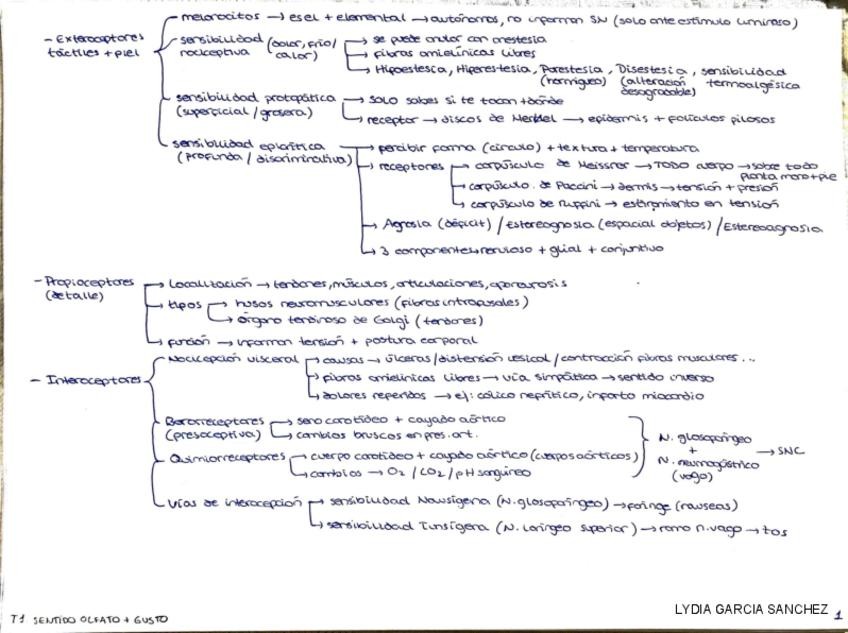 - Exteroceptores táctiles + piel
melanocitos → es el + elemental → autónomos, no informan SN (solo ante estímulo luminoso)
sensibilidad nociceptiva (dolor, frío/calor)
se puede anular con anestesia
fibras amielínicas libres
Hipoestesia, Hiperestesia, Parestesia (hormigueo), Disestesia (alteración desagradable), sensibilidad termoalgésica
sensibilidad protopática (superficial/grosera)
solo sabes si te tocan + dónde
receptor → discos de Merkel → epidermis + folículos pilosos
sensibilidad epicrítica (profunda/discriminativa)
percibir forma (círculo) + textura + temperatura
receptores
corpúsculo de Meissner → TODO cuerpo → sobre todo planta mano + pie
corpúsculo de Paccini → dermis → tensión + presión
corpúsculo de Ruffini → estiramiento en tensión
Agnosia (déficit) / Estereognosia (espacial objetos) / Estereoagnosia
3 componentes → nervioso + glial + conjuntivo
- Propioceptores (detalle)
Localización → tendones, músculos, articulaciones, aponeurosis
tipos
husos neuromusculares (fibras intrafusales)
órgano tendinoso de Golgi (tendones)
función → informan tensión + postura corporal
- Interoceptores
Nocicepción visceral
causas → úlceras/distensión vesical/contracción fibras musculares...
fibras amielínicas libres → vía simpática → sentido inverso
dolores referidos → ej: cólico nefrítico, infarto miocardio
Barorreceptores (presoceptiva)
seno carotídeo + cayado aórtico
cambios bruscos en pres. art.
Quimiorreceptores
cuerpo carotídeo + cayado aórtico (cuerpos aórticos)
cambios → O2 / CO2 / pH sanguíneo
N. glosofaríngeo + N. neumogástrico (vago) → SNC
Vías de interocepción
sensibilidad Nausígena (N. glosofaríngeo) → faringe (nauseas)
sensibilidad Tusígena (N. laríngeo superior) → ramo n. vago → tos
T1 SENTIDO OLFATO + GUSTO
LYDIA GARCIA SANCHEZ 1